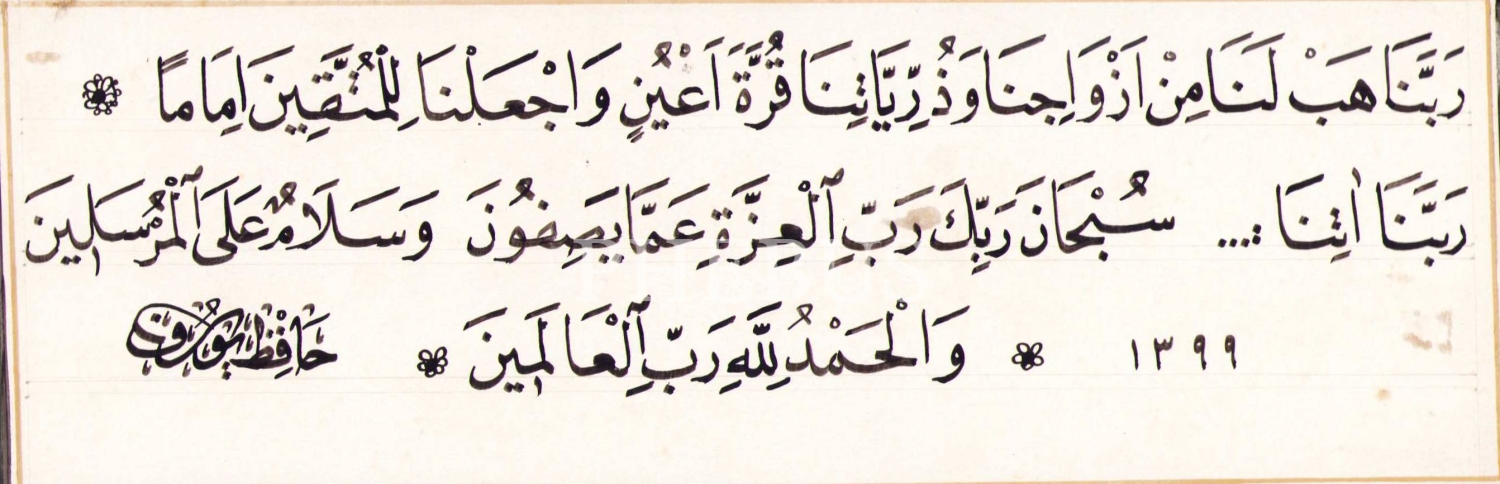 رَبَّنَا هَبْ لَنَا مِنْ اَزْوَاجِنَا وَذُرِّيَّاتِنَا قُرَّةَ اَعْيُنٍ وَاجْعَلْنَا لِلْمُتَّقِينَ اِمَامًا
رَبَّنَا اٰتِنَا .... سُبْحَانَ رَبِّكَ رَبِّ الْعِزَّةِ عَمَّا يَصِفُونَ وَسَلَامٌ عَلَى الْمُرْسَلِينَ
١٣٩٩ وَالْحَمْدُ لِلّٰهِ رَبِّ الْعَالَمِينَ حَافِظْ